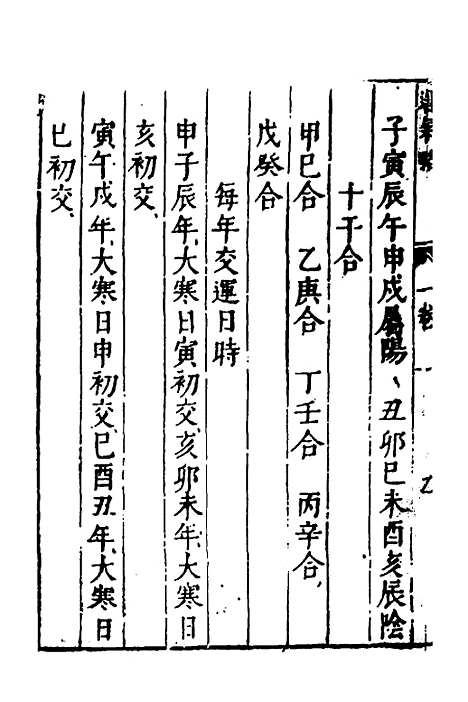 子寅辰午申戌屬陽、丑卯巳未酉亥辰陰
十干合
甲巳合　乙庚合　丁壬合　丙辛合、
戊癸合
每年交運日時
申子辰年、大寒日寅初交、亥卯未年、大寒日
亥初交、
寅午戌年、大寒日申初交、巳酉丑年、大寒日
巳初交、